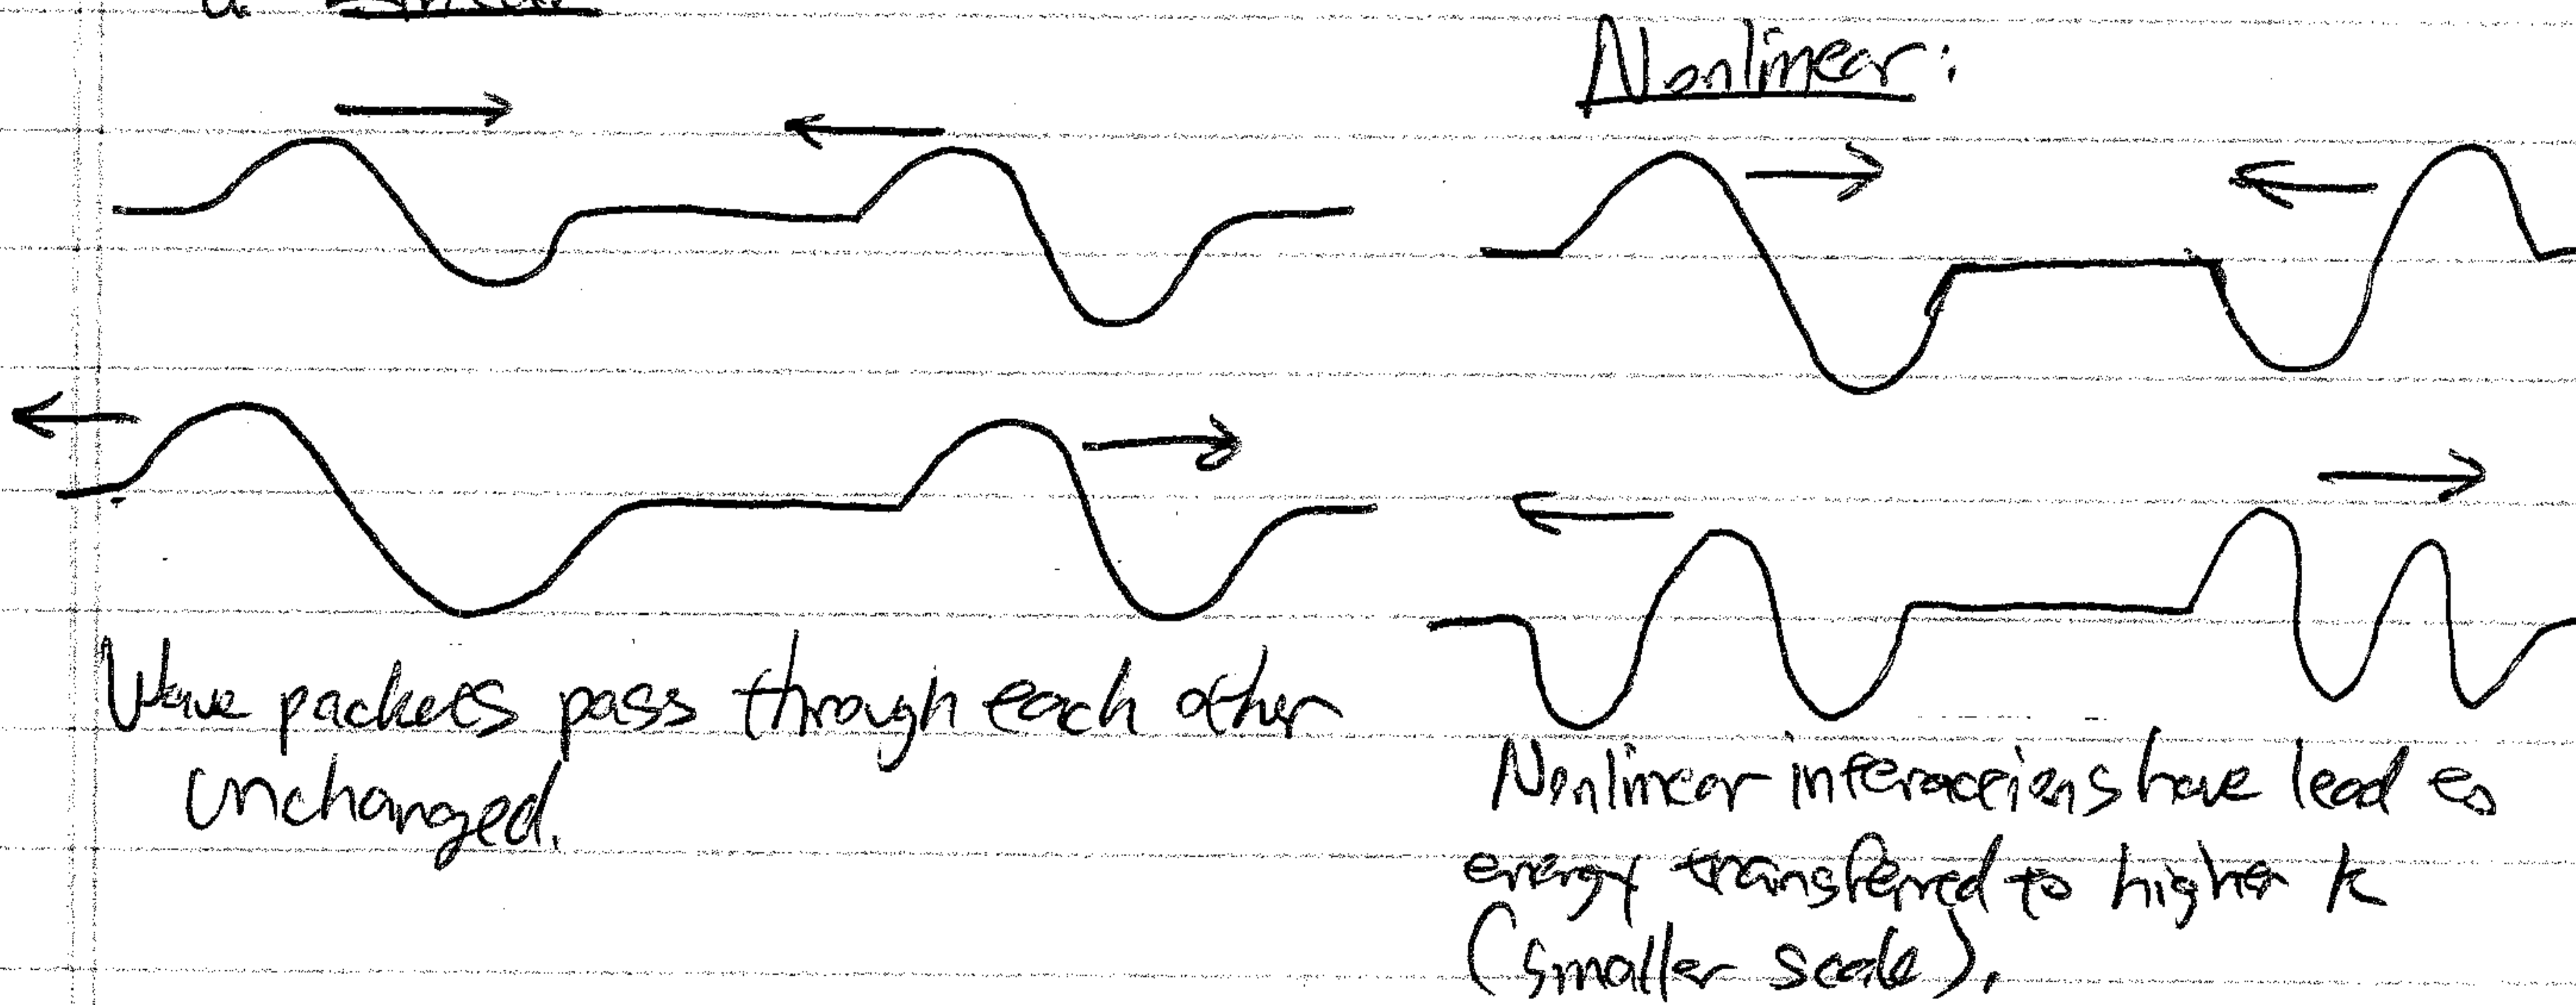 Nonlinear:
Wave packets pass through each other
unchanged.
Nonlinear interactions have lead to
energy transferred to higher k
(smaller scale).